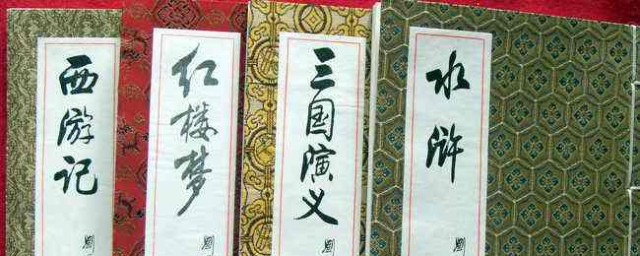 西游记
红楼梦
三国演义
水浒